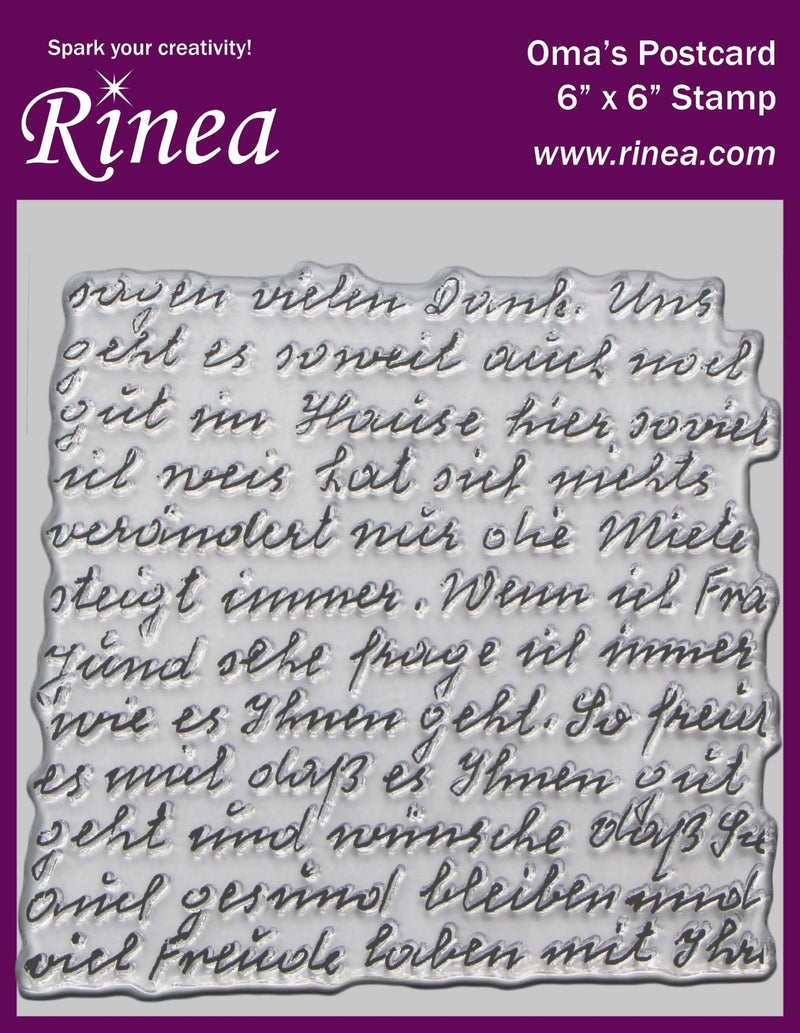 Spark your creativity!
Rinea
Oma's Postcard
6" x 6" Stamp
www.rinea.com
sagen vielen Dank. Uns
geht es soweit auch noch
gut im Hause hier soviel
ich weis hat sich nichts
verändert nur die Miete
steigt immer. Wenn ich Fra
Jund sehe frage ich immer
wie es Ihnen geht. So freut
es mich daß es Ihnen gut
geht und wünsche daß Sie
auch gesund bleiben und
viel Freude haben mit Ihr